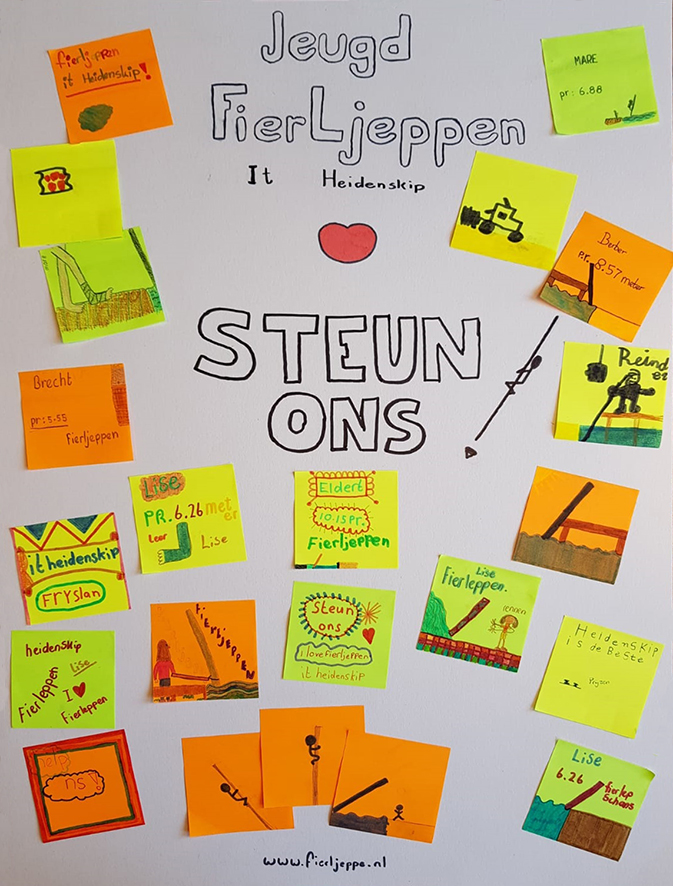 Jeugd
FierLjeppen
It Heidenskip
fierljeppen
it Heidenskip!
MARE
pr: 6.88
Berber
P.r. 8.57 meter
STEUN
ONS!
Reind
er
Brecht
pr: 5.55
Fierljeppen
Lise
PR. 6.26 met
er
Leer
Lise
Eldert
10.15 Pr.
Fierljeppen
it heidenskip
FRYSLAN
Lise
Fierleppen.
FIERLJEPPEN
Steun
ons
i love fierljeppen
it heidenskip
HEIdENSKIP
is de BeSte
heidenskip
Lise
Fierleppen
I ❤
Fierleppen
help
ns!
Lise
6.26
fierlep
Schans
www.fierljeppe.nl